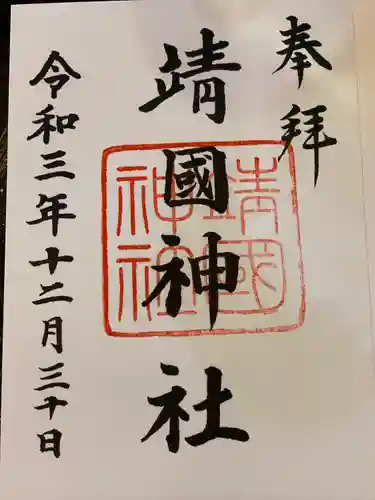 奉拝
靖國神社
靖國
神社
令和三年十二月三十日